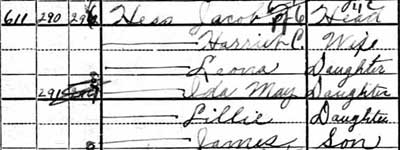 611 290 Hess Jacob Head
Harriet C. Wife
Leona Daughter
291 Ida May Daughter
Lillie Daughter
James Son